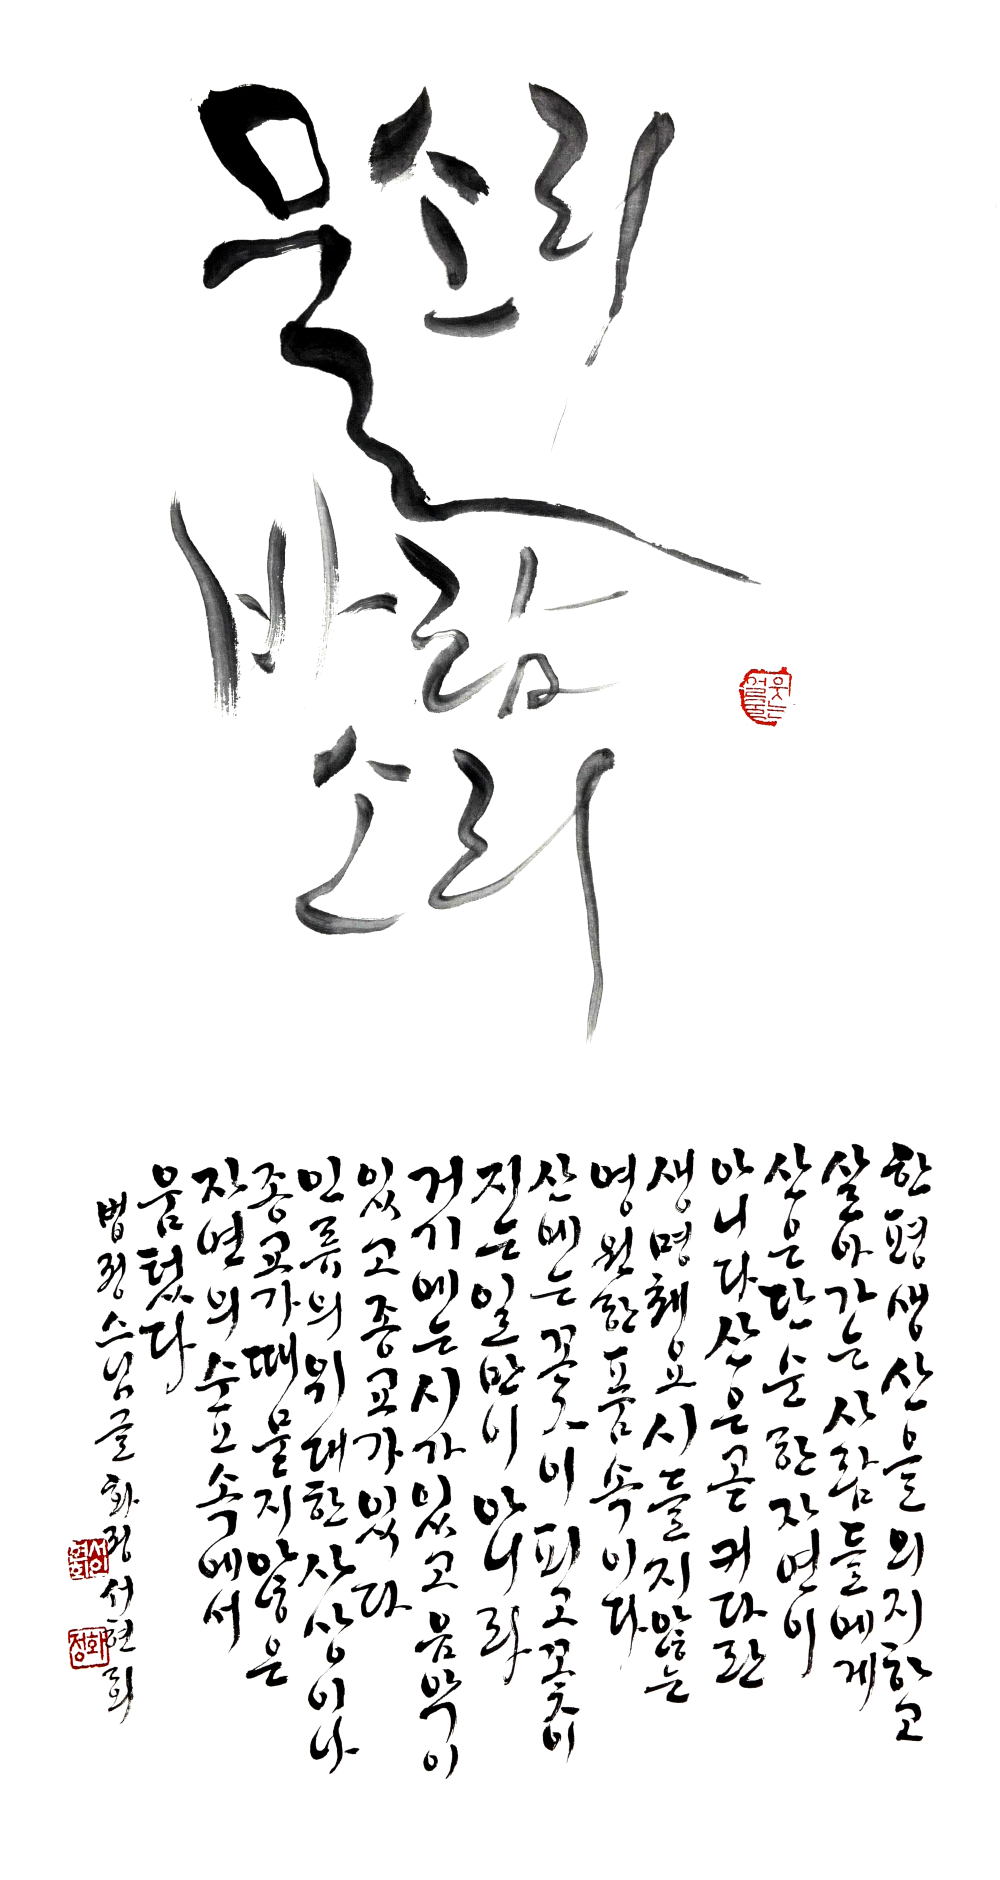 물소리
바람
소리
한평생 산을 의지하고
살아가는 사람들에게
산은 단순한 자연이
아니다 산은 곧 커다란
생명체요 시들지 않는
영원한 품속이다
산에는 꽃이 피고 꽃이
지는 일만이 아니라
거기에는 시가 있고 음악이
있고 종교가 있다
인류의 위대한 사상이나
종교가 때묻지 않은
자연의 숲 속에서
움텄다
법정스님글 화정 서현희
서현희
화정